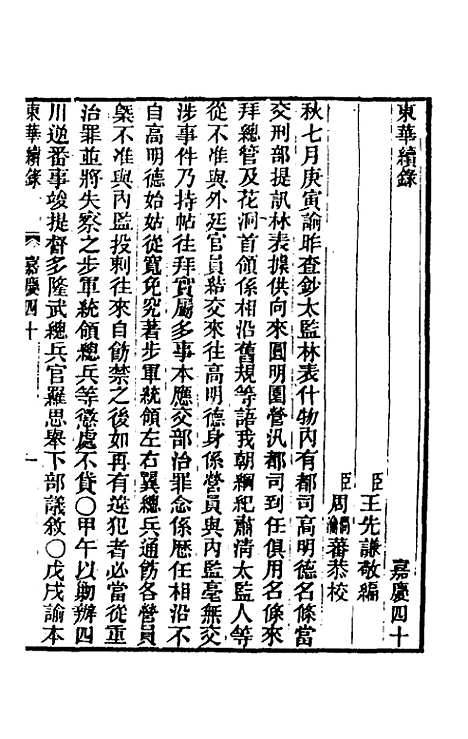 東華續錄
嘉慶四十
臣王先謙敬編
臣周瀹蕃恭校
秋七月庚寅諭昨查鈔太監林表什物內有都司高明德名條當
交刑部提訊林表據供向來圓明園營汛都司到任俱用名條來
拜總管及花洞首領係相沿舊規等語我朝綱紀肅清太監人等
從不准與外廷官員結交來往高明德身係營員與內監毫無交
涉事件乃持帖往拜實屬多事本應交部治罪念係歷任相沿不
自高明德始姑從寬免究著步軍統領左右翼總兵通飭各營員
槩不准與內監投刺往來自飭禁之後如再有違犯者必當從重
治罪並將失察之步軍統領總兵等懲處不貸〇甲午以勦辦四
川逆番事竣提督多隆武總兵官羅思舉下部議敘〇戊戌諭本
東華續錄
嘉慶四十
一